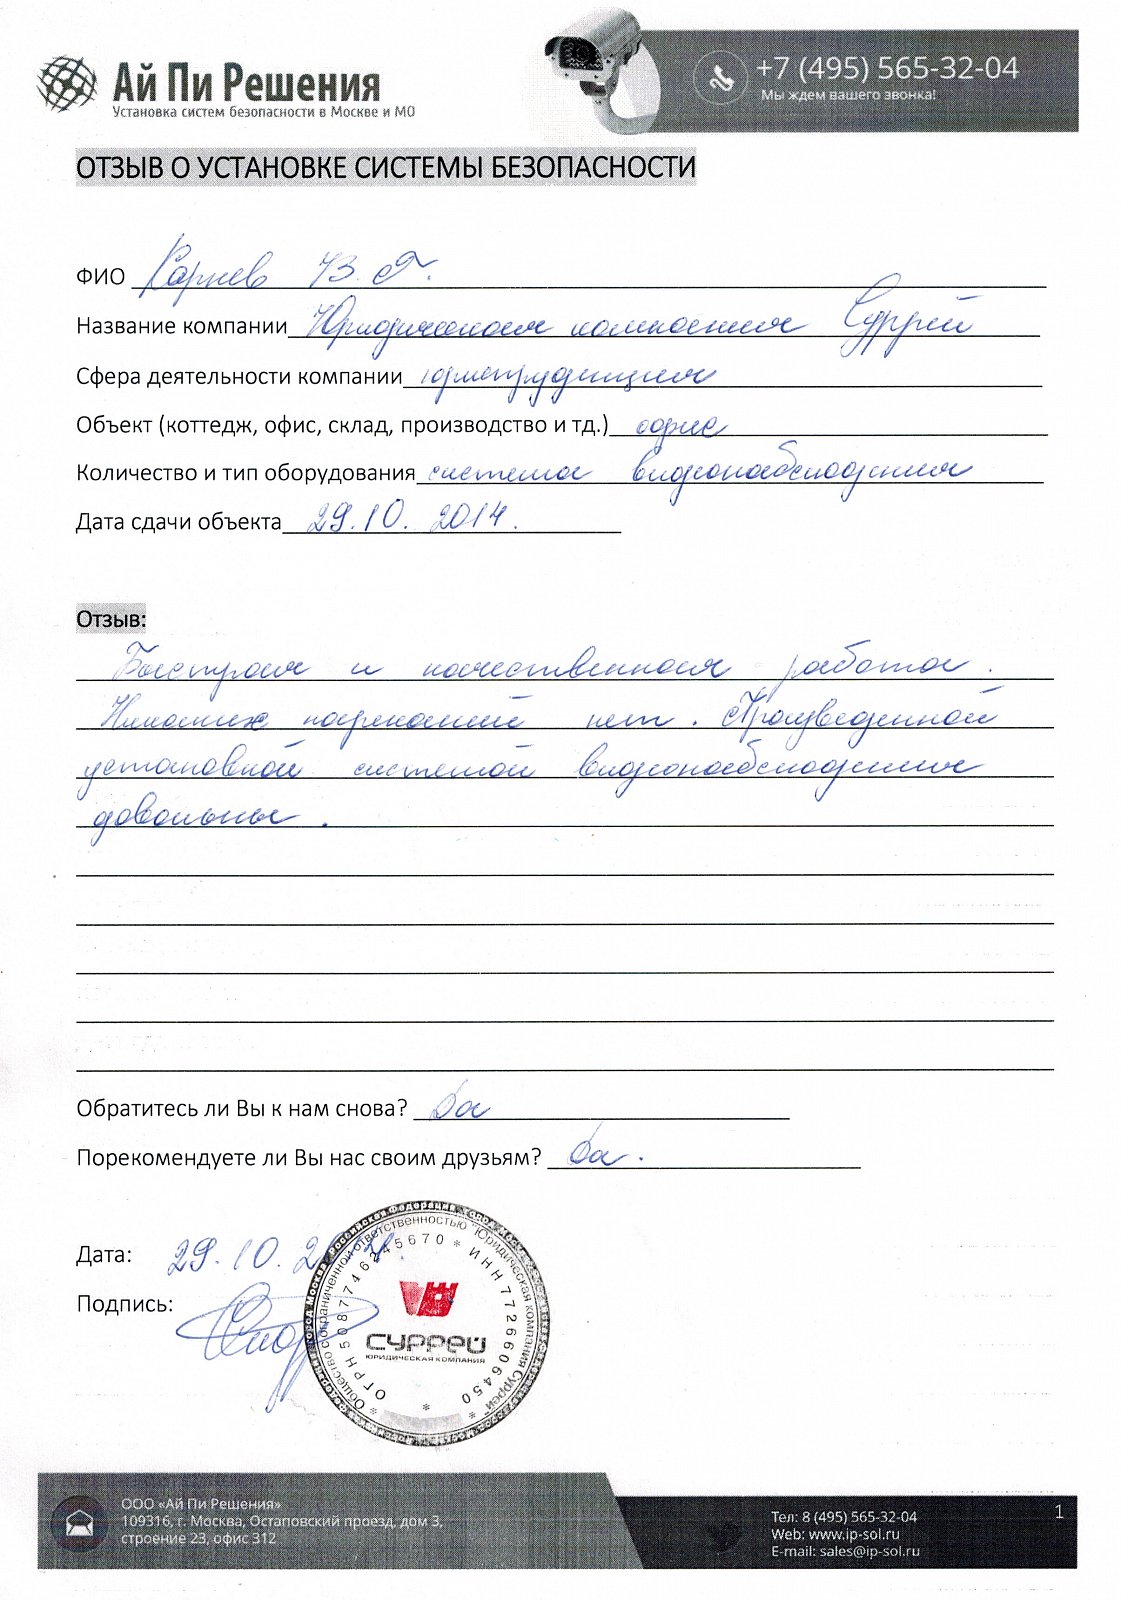 Ай Пи Решения
Установка систем безопасности в Москве и МО
+7 (495) 565-32-04
Мы ждем вашего звонка!
ОТЗЫВ О УСТАНОВКЕ СИСТЕМЫ БЕЗОПАСНОСТИ
ФИО
Название компании Юридическая компания Суррей
Сфера деятельности компании юриспруденция
Объект (коттедж, офис, склад, производство и тд.) офис
Количество и тип оборудования система видеонаблюдения
Дата сдачи объекта 29.10. 2014.
Отзыв:
Быстрая и качественная работа.
Никаких нареканий нет. Произведенной
установкой системой видеонаблюдения
довольны.
Обратитесь ли Вы к нам снова? Да
Порекомендуете ли Вы нас своим друзьям? Да.
Дата: 29.10.
Подпись:
Общество с ограниченной ответственностью "Юридическая компания Суррей"
ОГРН 5087746245670 * ИНН 7726606450 *
СУРРЕЙ
ЮРИДИЧЕСКАЯ КОМПАНИЯ
ООО «Ай Пи Решения»
109316, г. Москва, Остаповский проезд, дом 3,
строение 23, офис 312
Тел: 8 (495) 565-32-04
Web: www.ip-sol.ru
E-mail: sales@ip-sol.ru
1